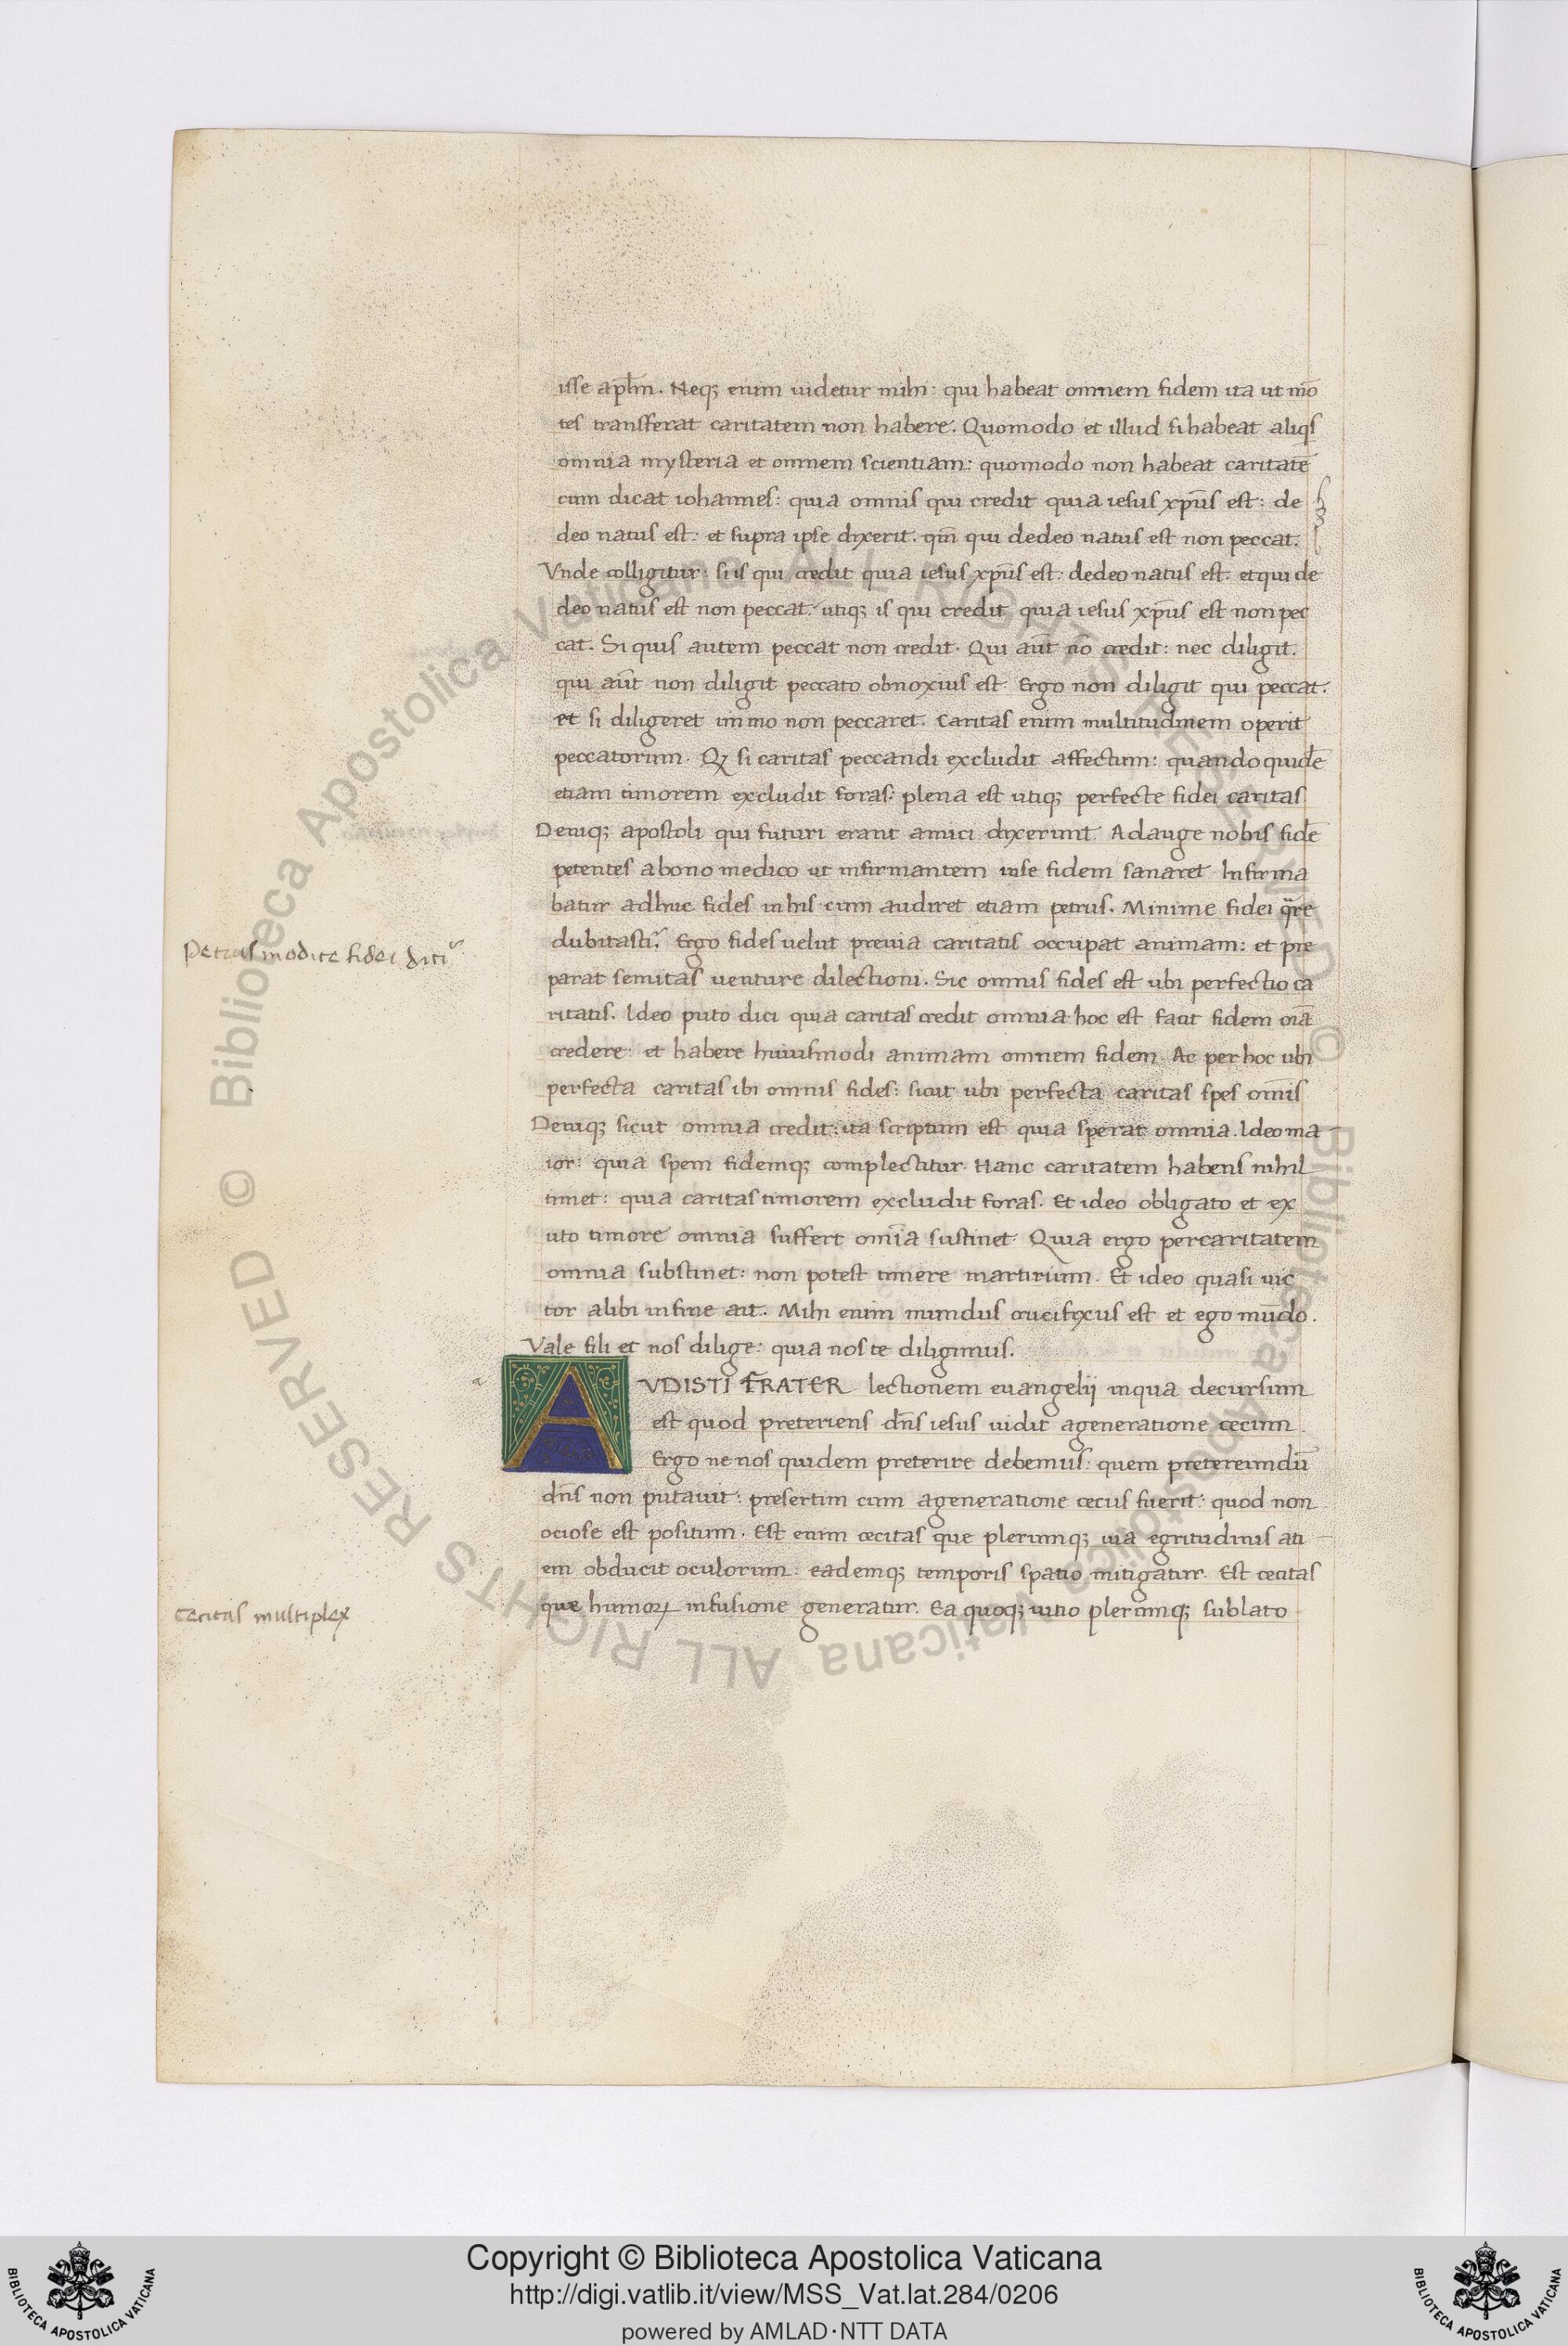 isse apl̄m. Neq; enim uidetur mihi: qui habeat omnem fidem ita ut mō
tes transferat caritatem non habere. Quomodo et illud si habeat aliq̄s
omnia mysteria et omnem scientiam: quomodo non habeat caritatē
cum dicat iohannes: quia omnis qui credit quia iesus xp̄us est: de
deo natus est: et supra ipse dixerit. qm̄ qui de deo natus est non peccat.
Vnde colligitur: si is qui credit quia iesus xp̄us est: de deo natus est. et qui de
deo natus est non peccat. utiq; is qui credit quia iesus xp̄us est non pec
cat. Si quis autem peccat non credit. Qui aut̄ nō credit: nec diligit.
qui aut̄ non diligit peccato obnoxius est. Ergo non diligit qui peccat.
et si diligeret immo non peccaret. Caritas enim multitudinem operit
peccatorum. Q; si caritas peccandi excludit affectum: quando quidē
etiam timorem excludit foras: plena est utiq; perfecte fidei caritas
Deniq; apostoli qui futuri erant amici dixerunt. Adauge nobis fidē
petentes a bono medico ut infirmantem in se fidem sanaret. Infirma
batur adhuc fides in his cum audiret etiam petrus. Minime fidei qr̄e
dubitasti? Ergo fides uelut preuia caritatis occupat animam: et pre
parat semitas uenture dilectioni. Sic omnis fides est ubi perfectio ca
ritatis. Ideo puto dici quia caritas credit omnia hoc est facit fidem oīa
credere: et habere huiusmodi animam omnem fidem. Ac per hoc ubi
perfecta caritas ibi omnis fides: sicut ubi perfecta caritas spes om̄is
Deniq; sicut omnia credit: ita scriptum est quia sperat omnia. Ideo ma
ior: quia spem fidemq; complectitur. Hanc caritatem habens nihil
timet: quia caritas timorem excludit foras. Et ideo obligato et ex
uto timore omnia suffert om̄ia sustinet. Quia ergo per caritatem
omnia substinet: non potest timere martirium. Et ideo quasi uic
tor alibi in fine ait. Mihi enim mundus crucifixus est et ego mūdo.
Vale fili et nos dilige: quia nos te diligimus.
a
AVDISTI FRATER lectionem euangelij in qua decursum
est quod preteriens dn̄s iesus uidit a generatione cecum.
Ergo ne nos quidem preterire debemus: quem pretereundū
dn̄s non putauit: presertim cum a generatione cecus fuerit: quod non
ociose est positum. Est enim cecitas que plerumq; uia egritudinis aci
em obducit oculorum: eademq; temporis spatio mitigatur. Est cecitas
que humoꝝ infusione generatur. Ea quoq; uitio plerumq; sublato
Petrus modice fidei dicit᷑
Cecitas multiplex
© Biblioteca Apostolica Vaticana ALL RIGHTS RESERVED © Biblioteca Apostolica Vaticana ALL RIGHTS RESERVED
Copyright © Biblioteca Apostolica Vaticana
http://digi.vatlib.it/view/MSS_Vat.lat.284/0206
powered by AMLAD·NTT DATA
BIBLIOTECA APOSTOLICA VATICANA
BIBLIOTECA APOSTOLICA VATICANA